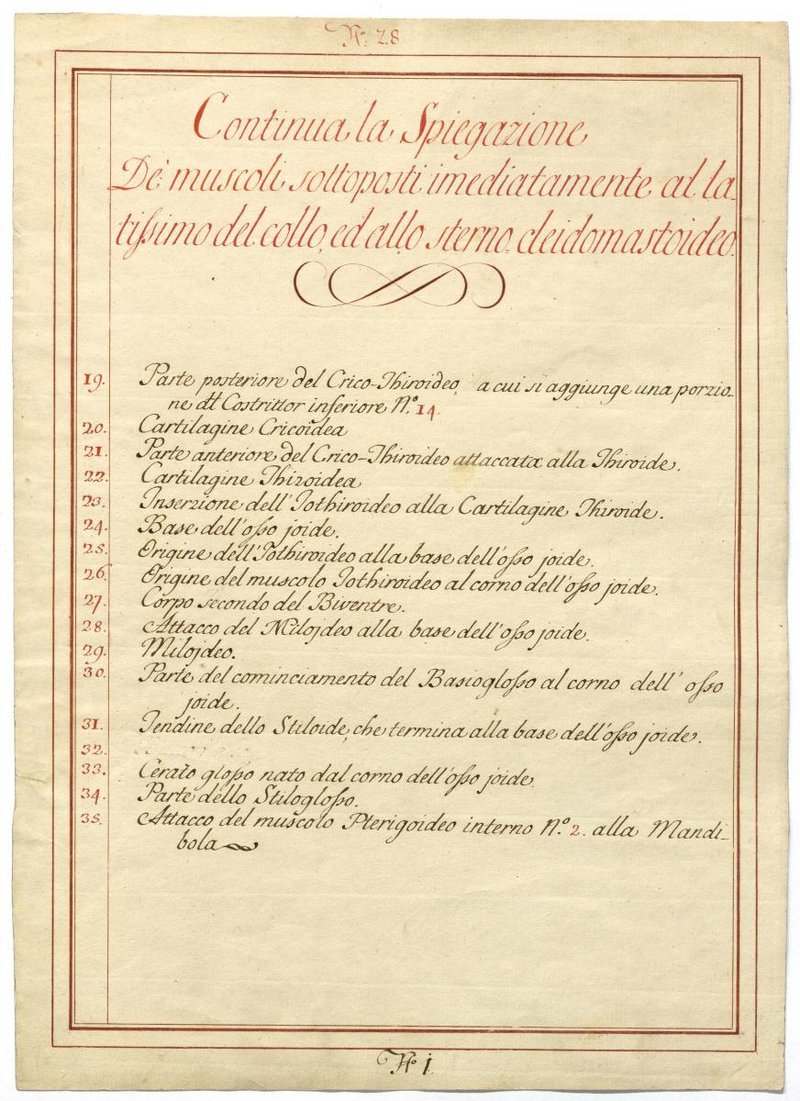 N.º 28
Continua la Spiegazione
De' muscoli sottoposti imediatamente al la-
tissimo del collo, ed allo sterno cleidomastoideo.
19. Parte posteriore del Crico-Thiroideo, a cui si aggiunge una porzio-
ne del Costrittor inferiore N.º 14.
20. Cartilagine Cricoidea
21. Parte anteriore del Crico-Thiroideo attaccata alla Thiroide.
22. Cartilagine Thiroidea
23. Inserzione dell'Jothiroideo alla Cartilagine Thiroide.
24. Base dell'osso joide.
25. Origine dell'Jothiroideo alla base dell'osso joide.
26. Origine del muscolo Jothiroideo al corno dell'osso joide.
27. Corpo secondo del Biventre.
28. Attacco del Milojdeo alla base dell'osso joide.
29. Milojdeo.
30. Parte del cominciamento del Basioglosso al corno dell' osso
joide.
31. Tendine dello Stiloide, che termina alla base dell'osso joide.
32.
33. Cerato glosso nato dal corno dell'osso joide.
34. Parte dello Stiloglosso.
35. Attacco del muscolo Pterigoideo interno N.º 2. alla Mandi-
bola
N.º 1